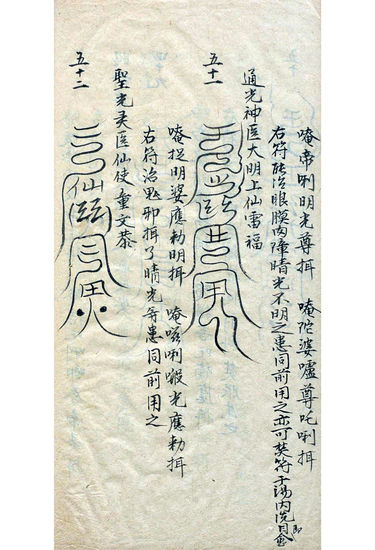 唵帝唎明光尊挕　唵陀婆嚧尊吒唎挕
右符能治眼膜內障睛光不明之患同前用之亦可焚符于湯內洗目即愈
通光神医大明上仙雷福
五十一
唵捉明婆應勅明挕　唵嗞唎光應勅挕
右符治鬼邪挕了睛光等患同前用之
聖光灵医仙使童文恭
五十二